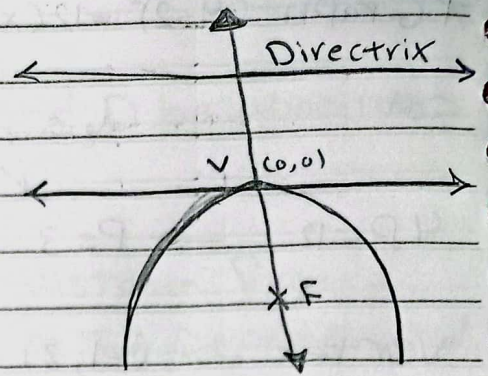 Directrix
V (0,0)
F